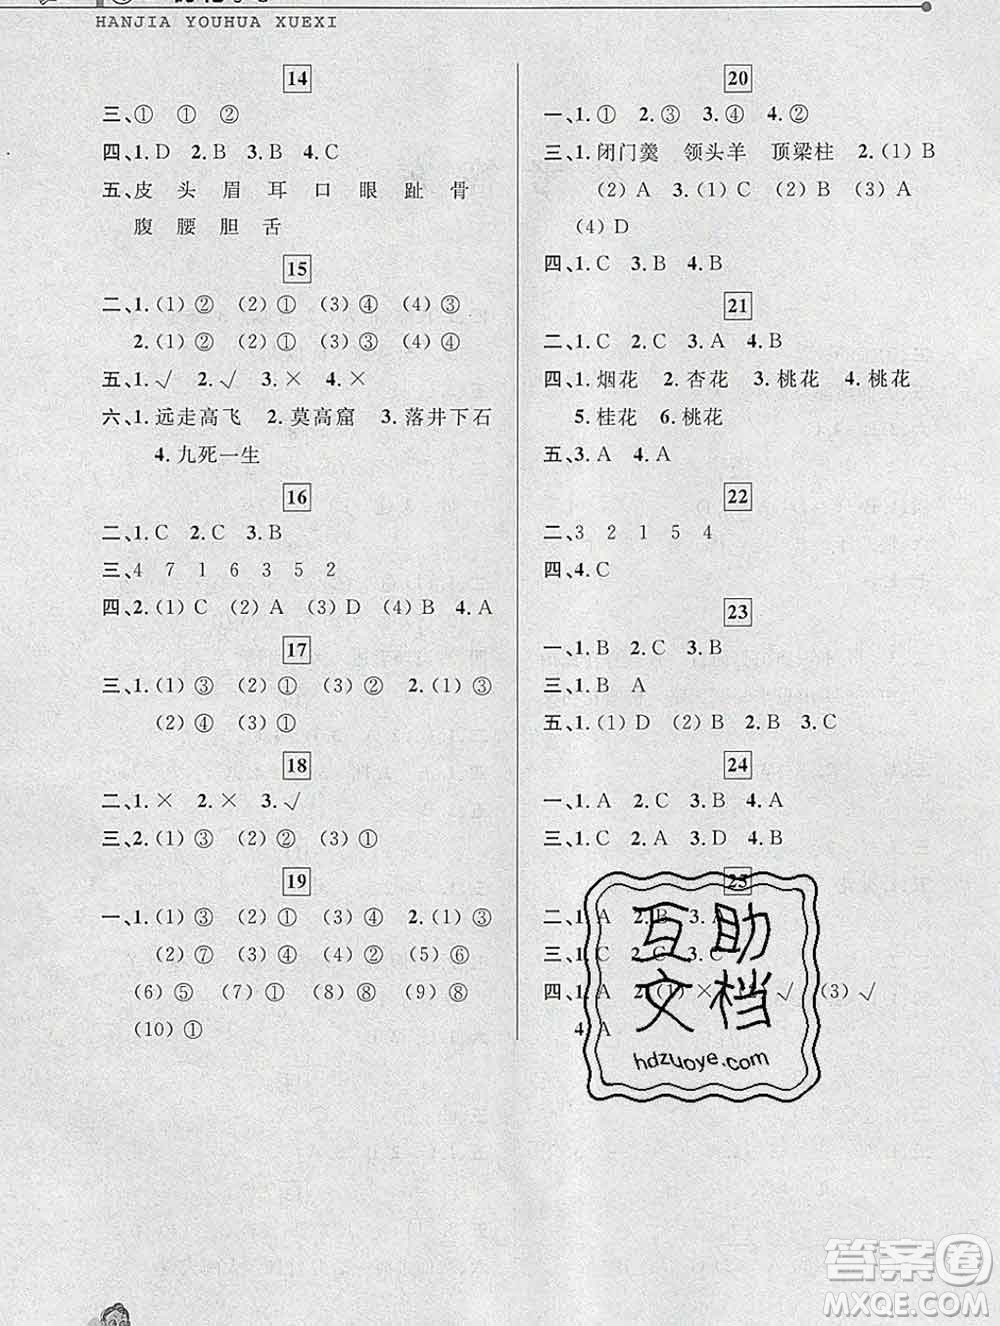 HANJIA YOUHUA XUEXI
14
三、① ① ②
四、1. D 2. B 3. B 4. C
五、皮 头 眉 耳 口 眼 趾 骨
腹 腰 胆 舌
15
二、1. (1) ② (2) ① (3) ④ (4) ③
2. (1) ② (2) ① (3) ③ (4) ④
五、1. √ 2. √ 3. × 4. ×
六、1. 远走高飞 2. 莫高窟 3. 落井下石
4. 九死一生
16
二、1. C 2. C 3. B
三、4 7 1 6 3 5 2
四、2. (1) C (2) A (3) D (4) B 4. A
17
三、1. (1) ③ (2) ① (3) ② 2. (1) ③
(2) ④ (3) ①
18
二、1. × 2. × 3. √
三、2. (1) ③ (2) ② (3) ①
19
一、1. (1) ③ (2) ① (3) ④ 2. (1) ③
(2) ⑦ (3) ④ (4) ② (5) ⑥
(6) ⑤ (7) ③ (8) ⑨ (9) ⑧
(10) ①
20
一、1. ① 2. ③ 3. ④ 4. ②
三、1. 闭门羹 领头羊 顶梁柱 2. (1) B
(2) A 3. (1) C (2) B (3) A
(4) D
四、1. C 3. B 4. B
21
二、1. C 2. C 3. A 4. B
四、1. 烟花 2. 杏花 3. 桃花 4. 桃花
5. 桂花 6. 桃花
五、3. A 4. A
22
二、3 2 1 5 4
四、4. C
23
一、1. B 2. C 3. B
三、1. B A
五、1. (1) D (2) B 2. B 3. C
24
一、1. A 2. C 3. B 4. A
三、1. C 2. A 3. D 4. B
25
二、1. A 2. B 3. A
三、1. C 2. C 3. C
四、1. A 2. (1) × √ (3) √
4. A
互助
文档
hdzuoye.com
答案圈
MXQE.COM